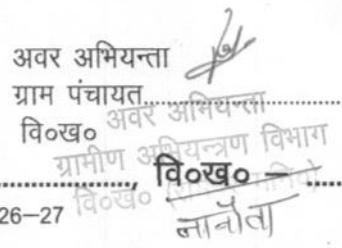 अवर अभियन्ता
ग्राम पंचायत....................................
वि०ख० अवर अभियन्ता
ग्रामीण अभियन्त्रण विभाग
........................, वि०ख० – ......
26–27 वि०ख०
नानौता